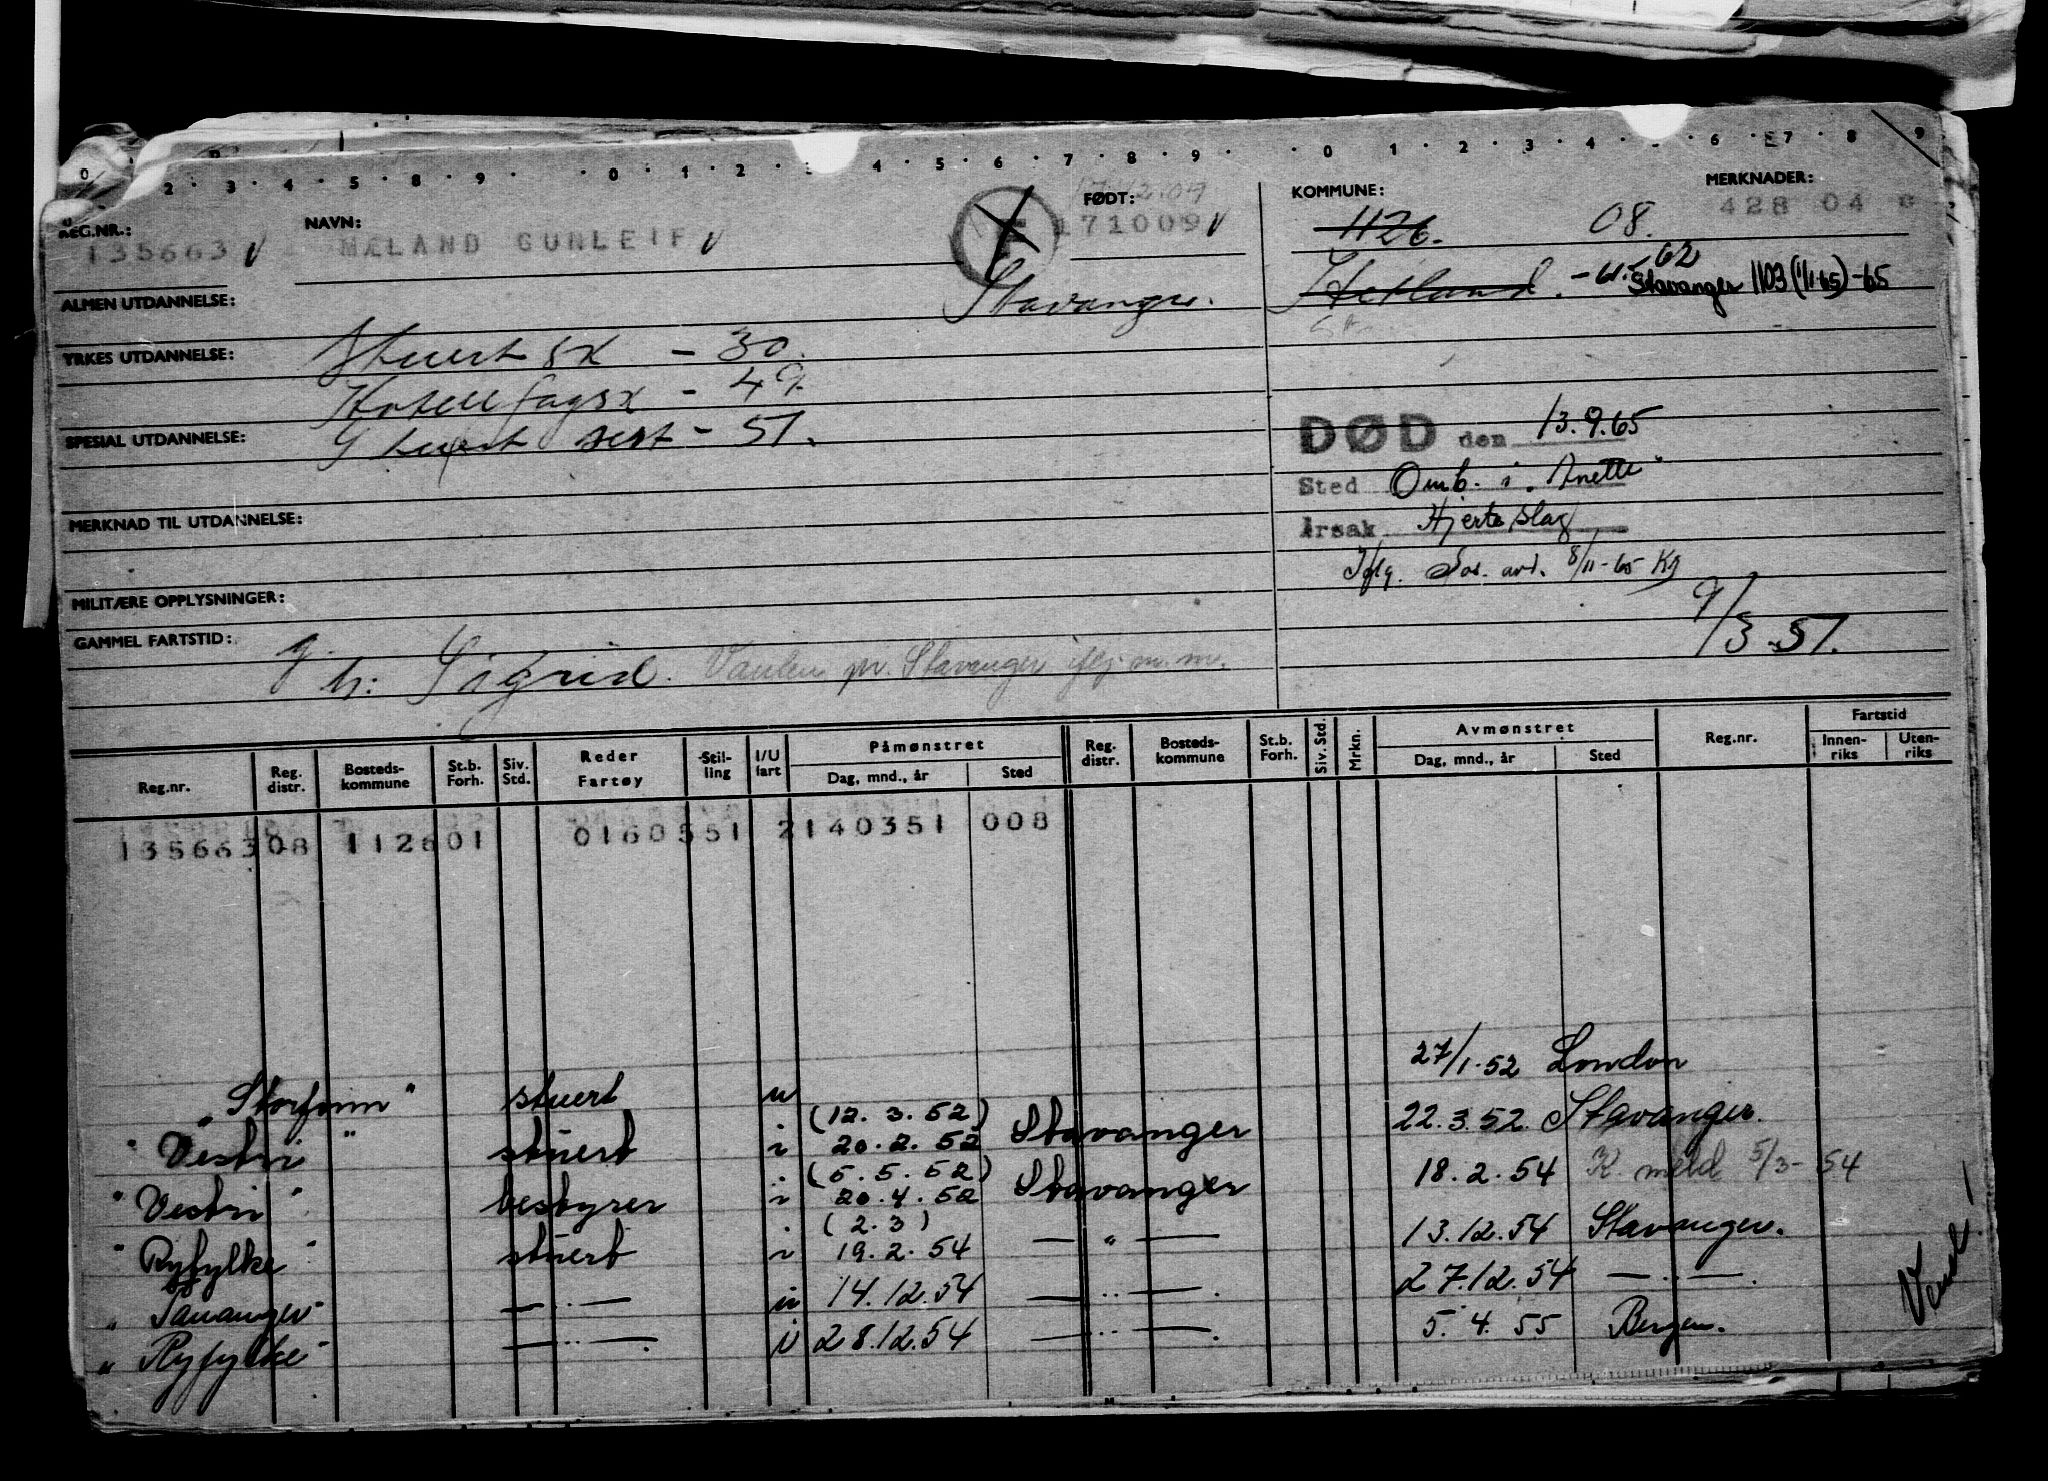 2 3 4 5 8 9 0 1 2 4 5 6 7 8 9 0 1 2 3 4 6 7 8 9
REG.NR.: NAVN: FØDT: KOMMUNE: MERKNADER:
135663 MÆLAND GUNLEIF 171009 1126. 08. 428 04
Stavanger. Hetland. -62 Stavanger 1103 (1/1-65) -65
ALMEN UTDANNELSE:
YRKES UTDANNELSE: Stuert sk - 30.
Hotell fagsk - 49
SPESIAL UTDANNELSE: Stuert sert - 51.
DØD den 13.9.65
Sted Omb. i "Anette"
MERKNAD TIL UTDANNELSE:
Årsak Hjerteslag
Iflg. Sos. avd. 8/11-65 Kg
MILITÆRE OPPLYSNINGER:
9/3-51.
GAMMEL FARTSTID:
g.
h: Sigrid. Vaulen pr. Stavanger iflg. m.m.
Reg.nr. Reg. distr. Bosteds-kommune St.b. Forh. Siv. Std. Reder Fartøy Stil-ling I/U fart Påmønstret Dag, mnd., år Sted Reg. distr. Bosteds-kommune St.b. Forh. Siv. Std. Mrkn. Avmønstret Dag, mnd., år Sted Reg.nr. Fartstid Innen-riks Uten-riks
135663 08 112601 0160551 2140351 008
"Storfonn" stuert u 27/1.52 London
(12.3.52)
"Vestri" stuert i 20.2.52 Stavanger 22.3.52. Stavanger.
(5.5.52)
"Vestri" bestyrer i 20.4.52 Stavanger 18.2.54 K. meld 5/3-54
(2.3)
"Ryfylke" stuert i 19.2.54 — " — 13.12.54 Stavanger.
"Tananger" — " — u 14.12.54 — " —. 27.12.54 — " —.
"Ryfylke" — " —. i 28.12.54 — " —. 5.4.55 Bergen.
Vend